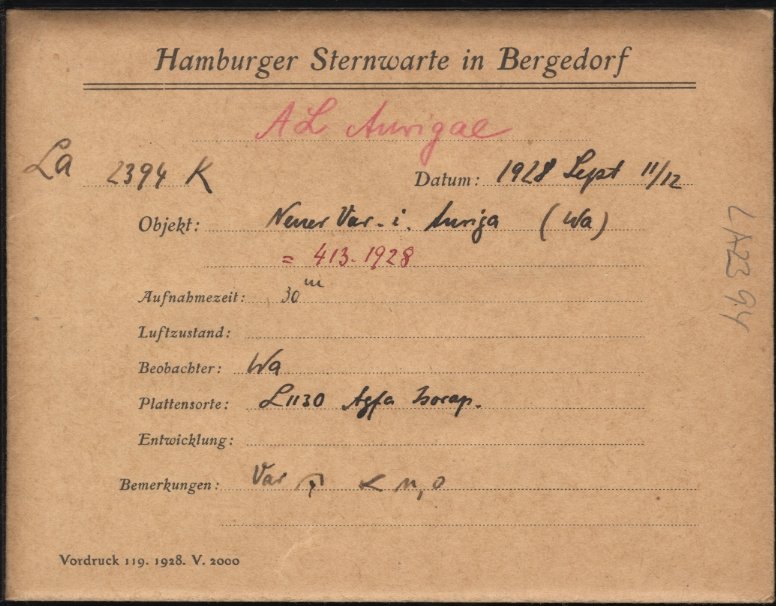 Hamburger Sternwarte in Bergedorf
AL Aurigae
La 2394 K Datum: 1928 Sept 11/12
Objekt: Neuer Var. i. Auriga (Wa)
= 413.1928
Aufnahmezeit: 30m
Luftzustand:
Beobachter: Wa
Plattensorte: L1130 Agfa Isorap.
Entwicklung:
Bemerkungen: Var < n, o
Vordruck 119. 1928. V. 2000
LA2394